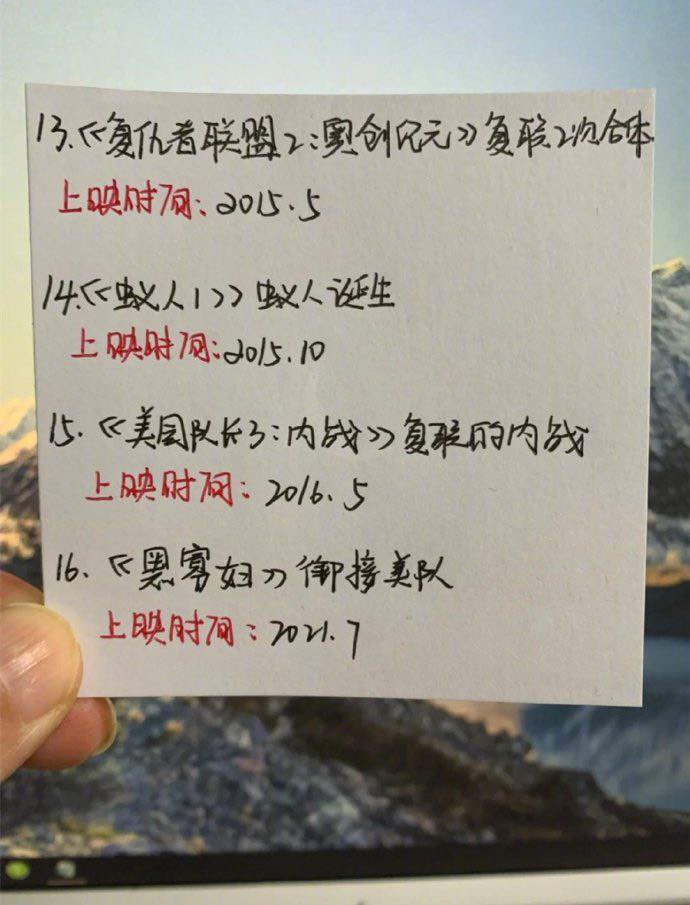 13.《复仇者联盟2:奥创纪元》复联2次合体
上映时间:2015.5
14.《蚁人1》蚁人诞生
上映时间:2015.10
15.《美国队长3:内战》复联的内战
上映时间:2016.5
16.《黑寡妇》衔接美队
上映时间:2021.7